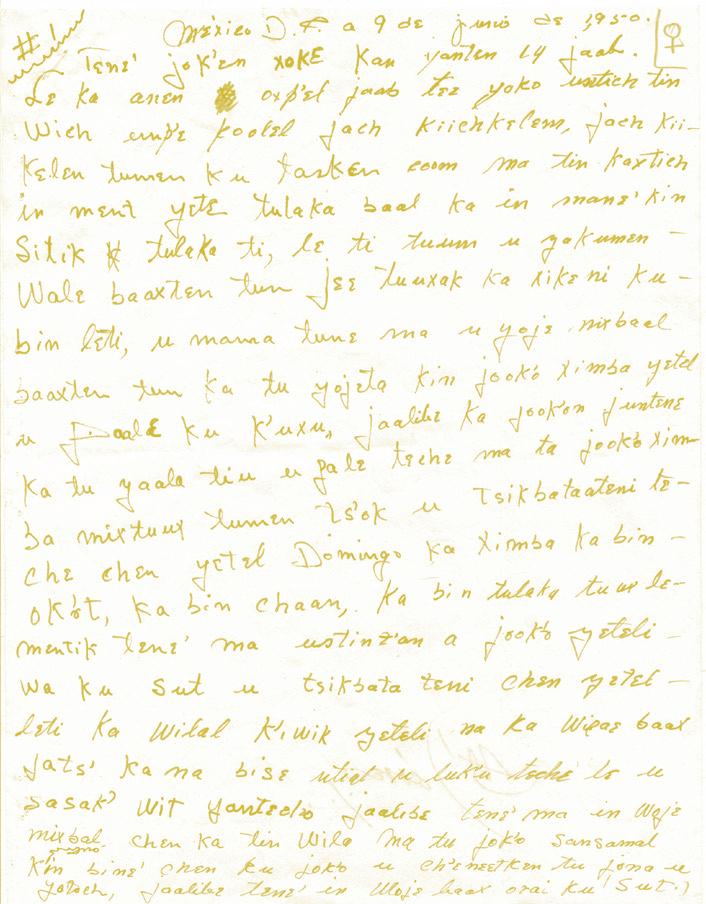 #1
México D.F. a 9 de junio de 1950.
Tene' jok'en xoke kan yanten 14 jaab.
Le ka anen oxp'el jaab tee yoko ustich tin
Wich unp'e poolel jach kiichkelem, jach kii-
kelen tumen ku tasken coom ma tin kaxtich
in ment yete tulaka baal ka in mane' kin
Sitik tulaka ti, le ti tuum u yakumen -
Wale baaxten tun jee tuuxak ka xikeni ku -
bin leti, u mama tune ma u yoje mixbaal
baaxten tun ka tu yojeta kin jook'o ximba yetel
u paale ku k'uxu, jaalibe ka jook'on juntene
ka tu yaala tiu u pale teche ma ta jook'o xim-
ba mixtuux tumen ts'ok u tsikbataateni te-
che chen yetel Domingo ka ximba ka bin -
ok'ot, ka bin chaan, ka bin tulaka tuux le-
mentik tene' ma ustinz'an a jook'o yeteli -
wa ku sut u tsikbata teni chen yetel -
leti ka wilal k'iwik yeteli na ka wipae baax
jats' ka na bise utial u luk'u teche le u
sasak' wit yanteche jaalibe tene' ma in woje
mixbal. chen ka tin wila ma tu jok'o sansamal
k'in bine' chen ku jok'o u ch'eneetken tu jona u
yotoch, jaalibe tene' in woje baax orai ku sut.)